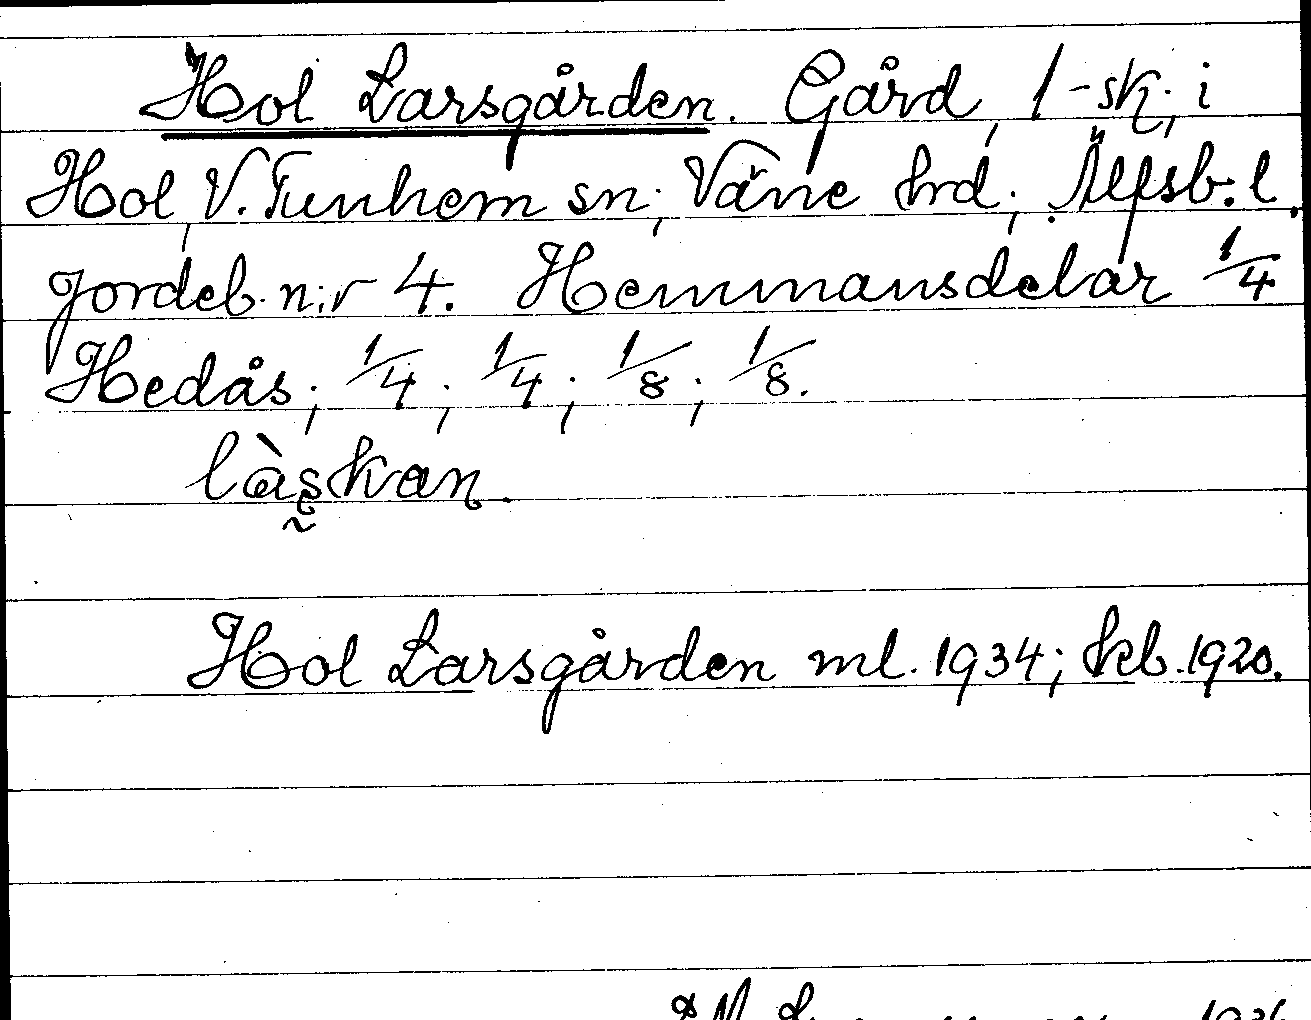 Hol Larsgården. Gård, 1-sk, i
Hol, V. Tunhem sn, Väne hrd, Älfsb. l.
Jordeb. n:r 4. Hemmansdelar 1/4
Hedås, 1/4, 1/4, 1/8, 1/8.
làs̰kan.
Hol Larsgården ml. 1934; kb. 1920.